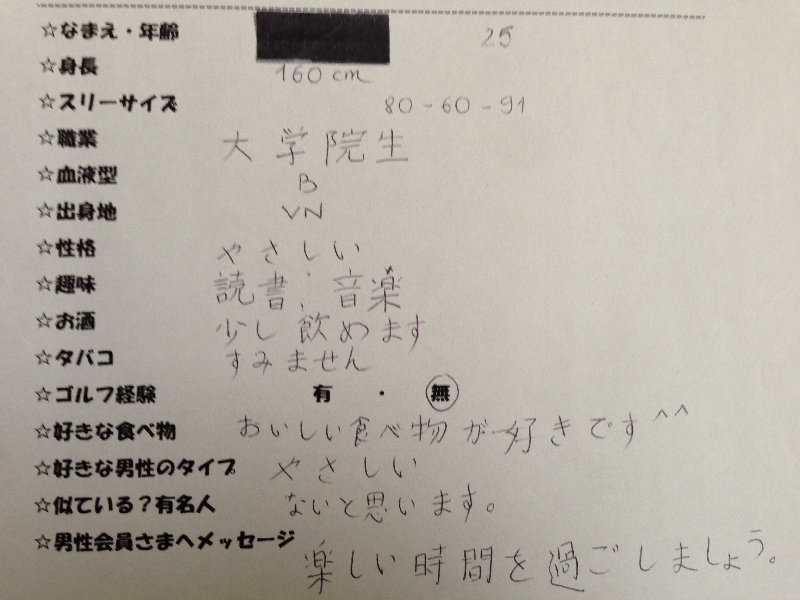 ☆なまえ・年齢 25
☆身長 160cm
☆スリーサイズ 80-60-91
☆職業 大学院生
☆血液型 B
☆出身地 VN
☆性格 やさしい
☆趣味 読書, 音楽
☆お酒 少し飲めます
☆タバコ すみません
☆ゴルフ経験 有・無
☆好きな食べ物 おいしい食べ物が好きです^^
☆好きな男性のタイプ やさしい
☆似ている?有名人 ないと思います。
☆男性会員さまへメッセージ 楽しい時間を過ごしましょう。